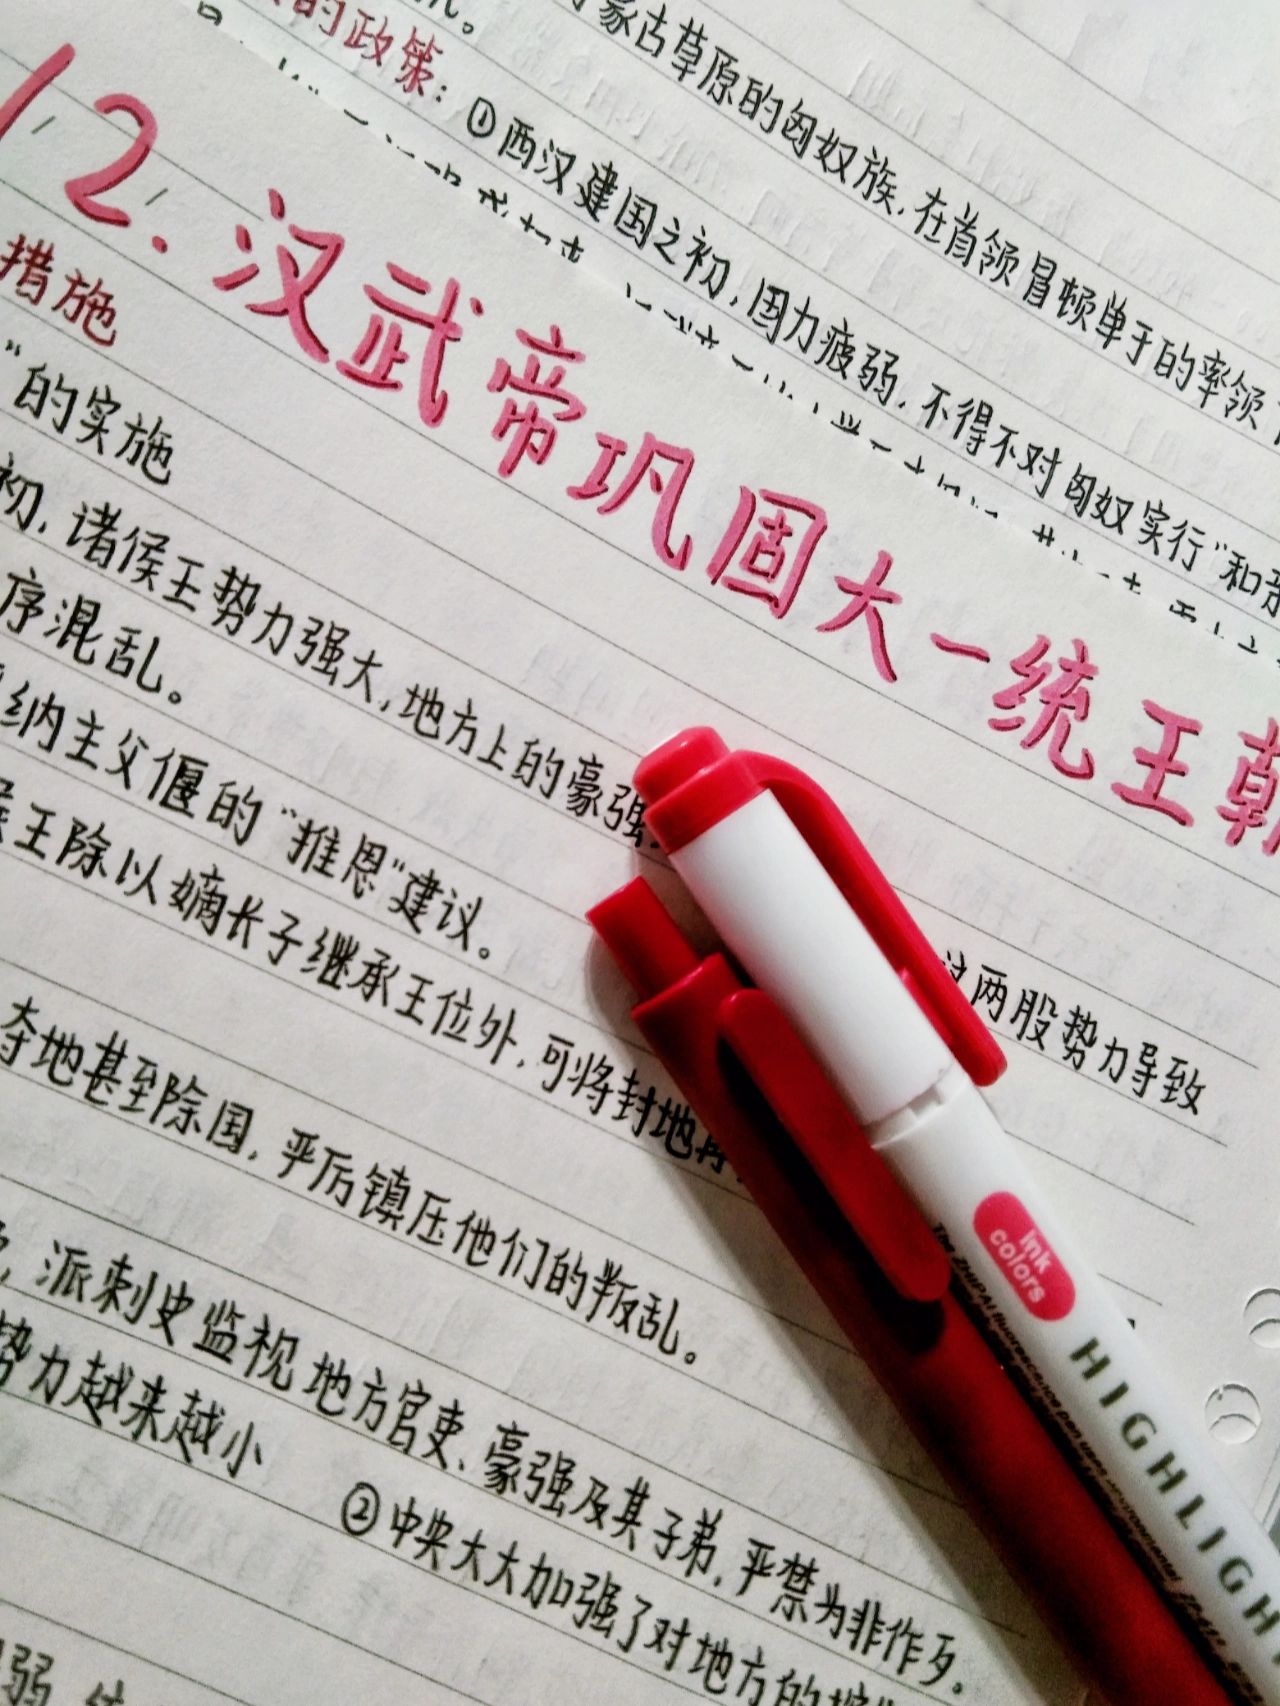 蒙古草原的匈奴族,在首领冒顿单于的率领
的政策:①西汉建国之初,国力疲弱,不得不对匈奴实行"和亲
12.汉武帝巩固大一统王朝
措施
"的实施
初,诸侯王势力强大,地方上的豪强
这两股势力导致
序混乱。
纳主父偃的"推恩"建议。
侯王除以嫡长子继承王位外,可将封地再
夺地甚至除国,严厉镇压他们的叛乱。
派刺史监视地方官吏、豪强及其子弟,严禁为非作歹。
势力越来越小 ②中央大大加强了对地方的控制
弱
ink
colors
HIGHLIGH